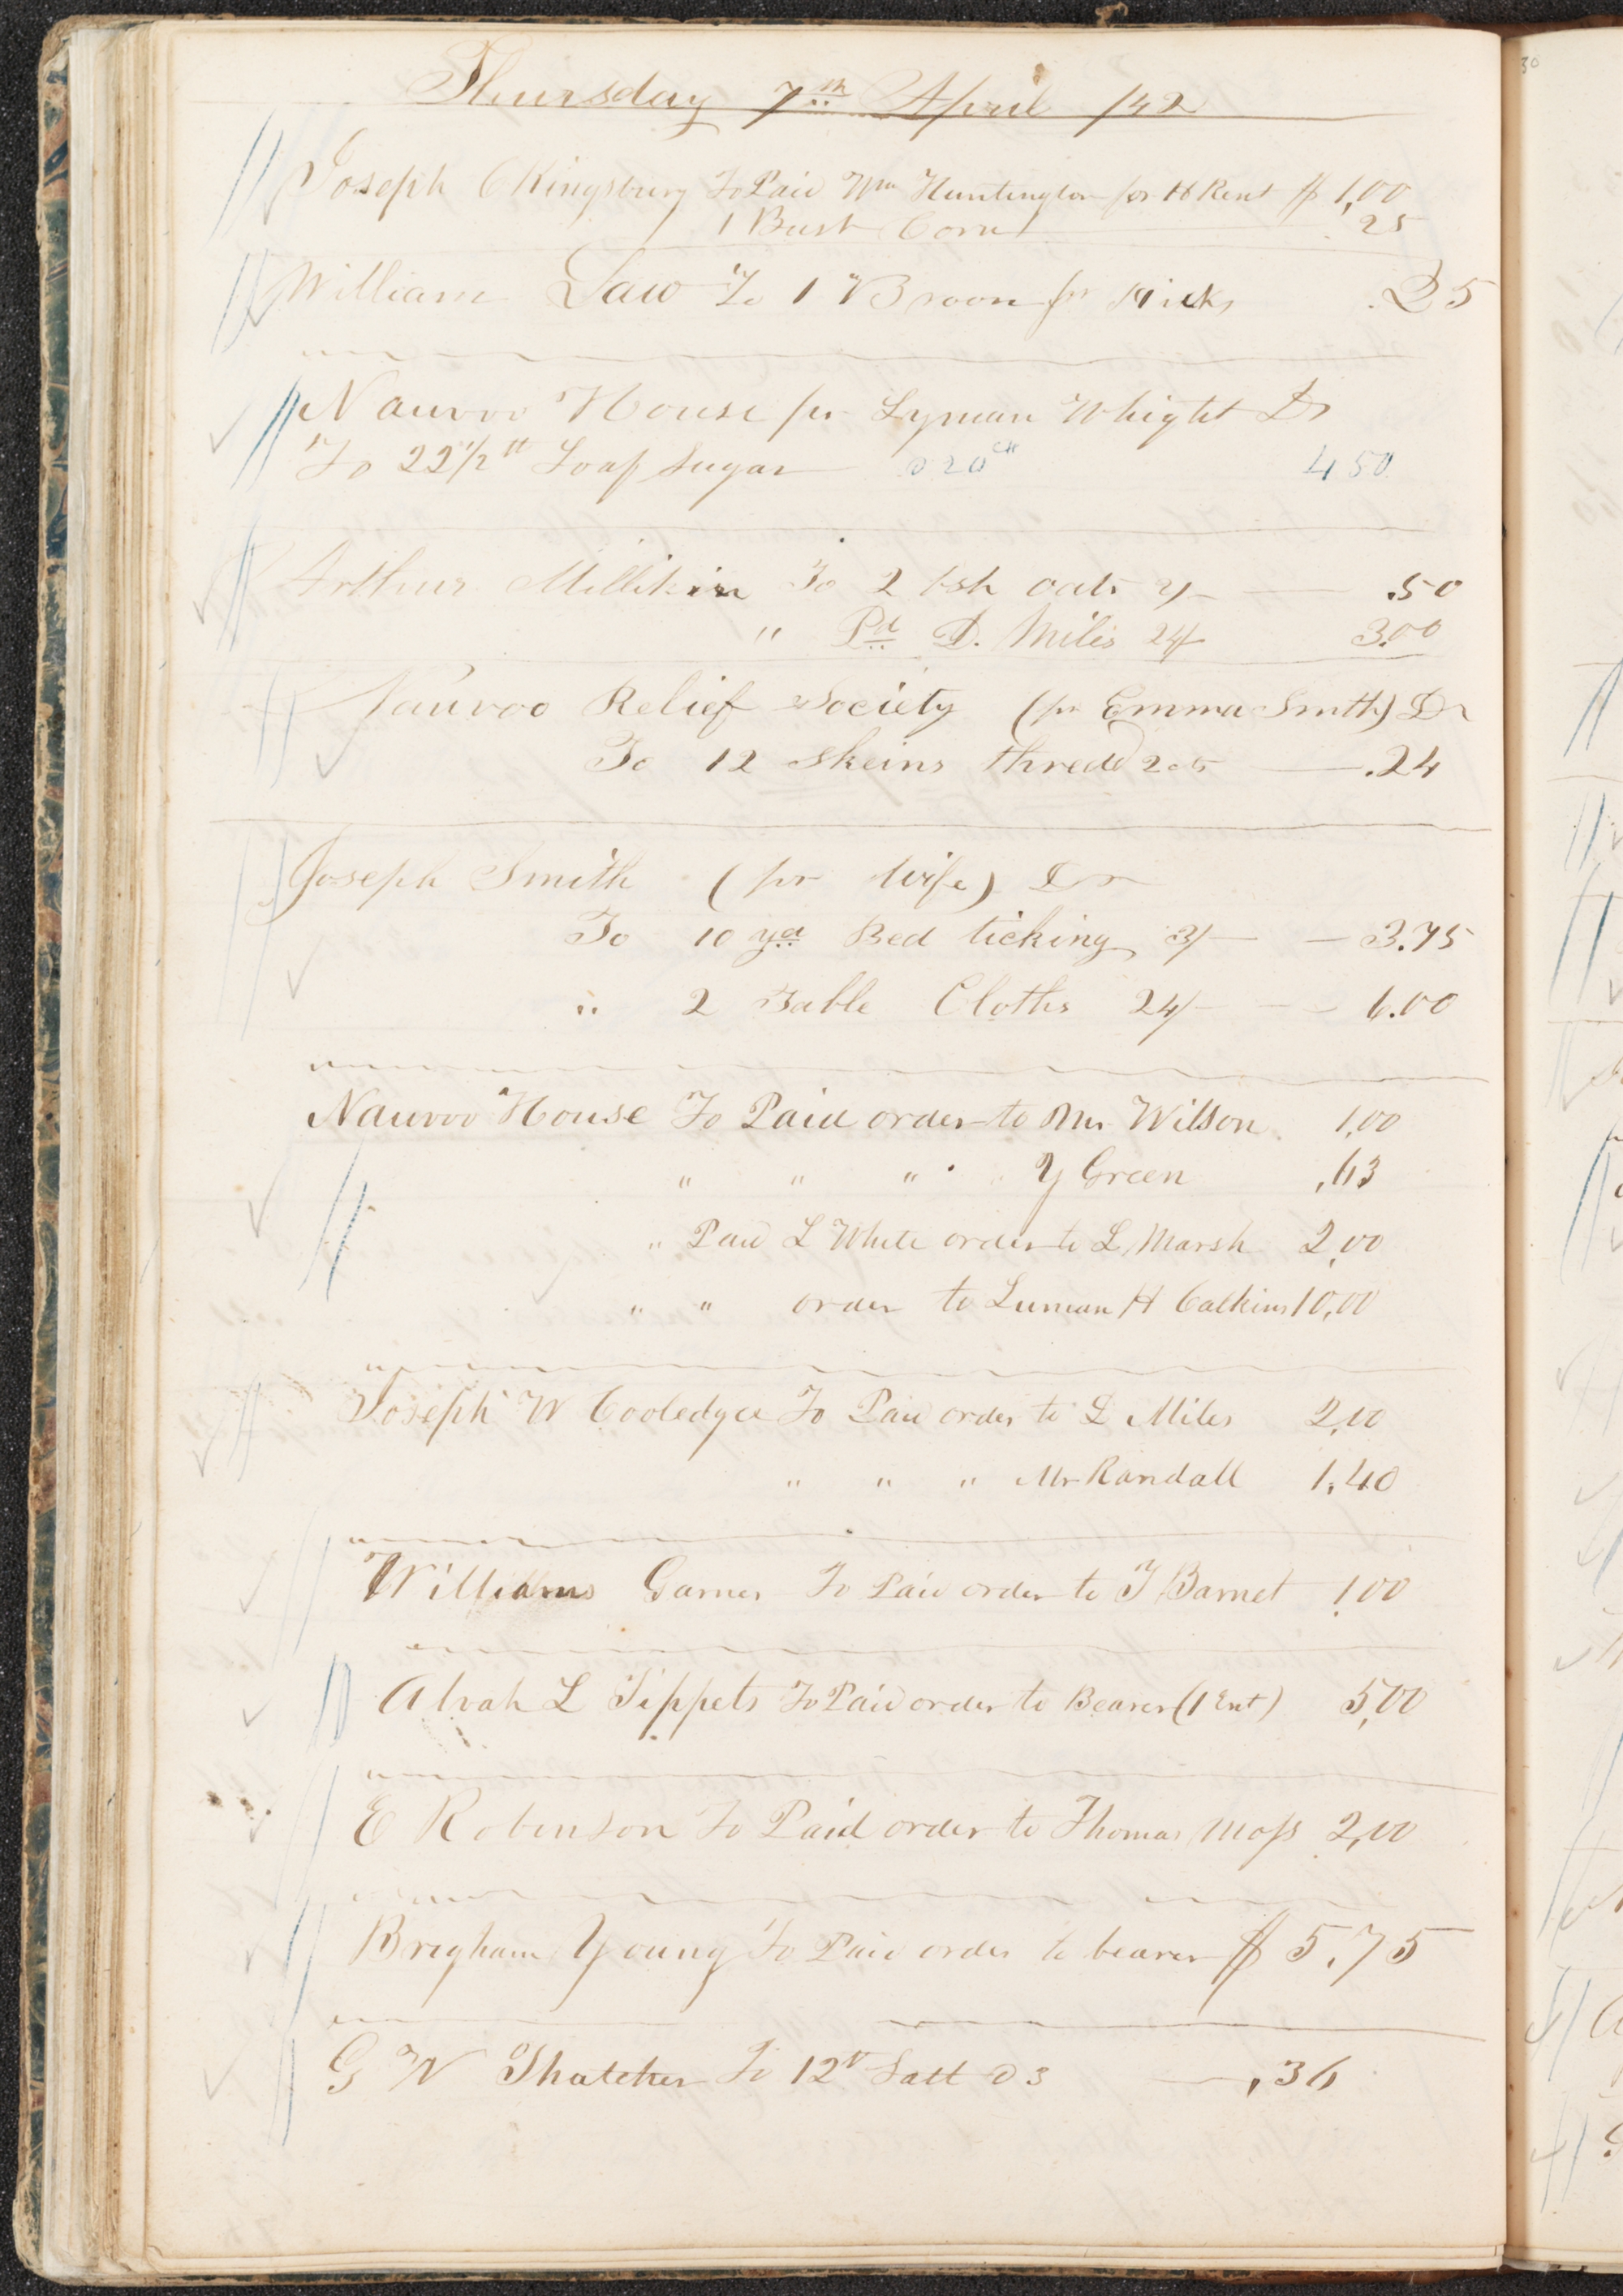 Thursday 7th April /42
Joseph C Kingsbury To Paid Wm Huntington for H Rent $ 1,00
1 Bush Corn 25
William Law To 1 Broom pr Hicks .25
Nauvoo House pr Lyman Whight Dr
To 22 1/2 lb Loaf Sugar @ 20 cts 4 50
Arthur Millikin To 2 bsh oats 2/- .50
" Pd D. Miles 24/ 3.00
Nauvoo Relief Society (pr Emma Smith) Dr
To 12 Skeins thred 2cts .24
Joseph Smith (pr wife) Dr
To 10 yd Bed ticking 3/- 3.75
" 2 Table Cloths 24/- 6.00
Nauvoo House To Paid order to Mr Wilson 1,00
" " " " Y Green ,63
" Paid L White order to L Marsh 2,00
" " order to Luman H Calkins 10,00
Joseph W Cooledge To Paid order to L Miles 2,00
" " " Mr Randall 1,40
Williams Garner To Paid order to T Barnet 1,00
Alvah L Tippets To Paid order to Bearer (1 Ent) 5,00
E Robinson To Paid order to Thomas Moss 2,00
Brigham Young To Paid order to bearer $ 5.75
G W Thatcher To 12 lb Salt @ 3 ,36
30